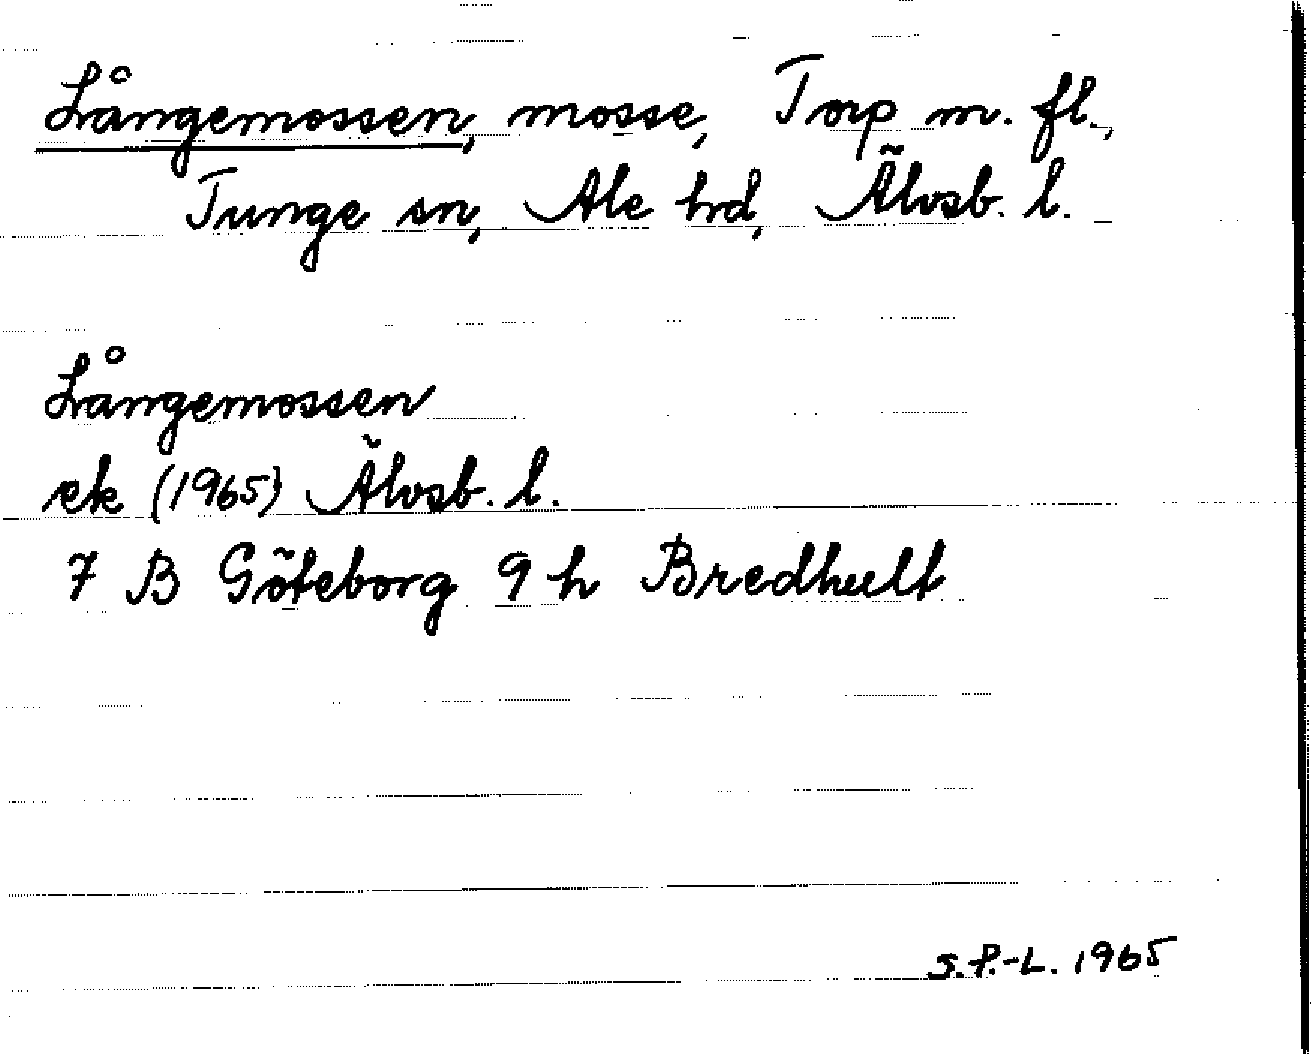 Långemossen, mosse, Torp m. fl.,
Tunge sn, Ale hd, Älvsb. l.
Långemossen
ek (1965) Älvsb. l.
7 B Göteborg 9 h Bredhult
S.P.-L. 1965